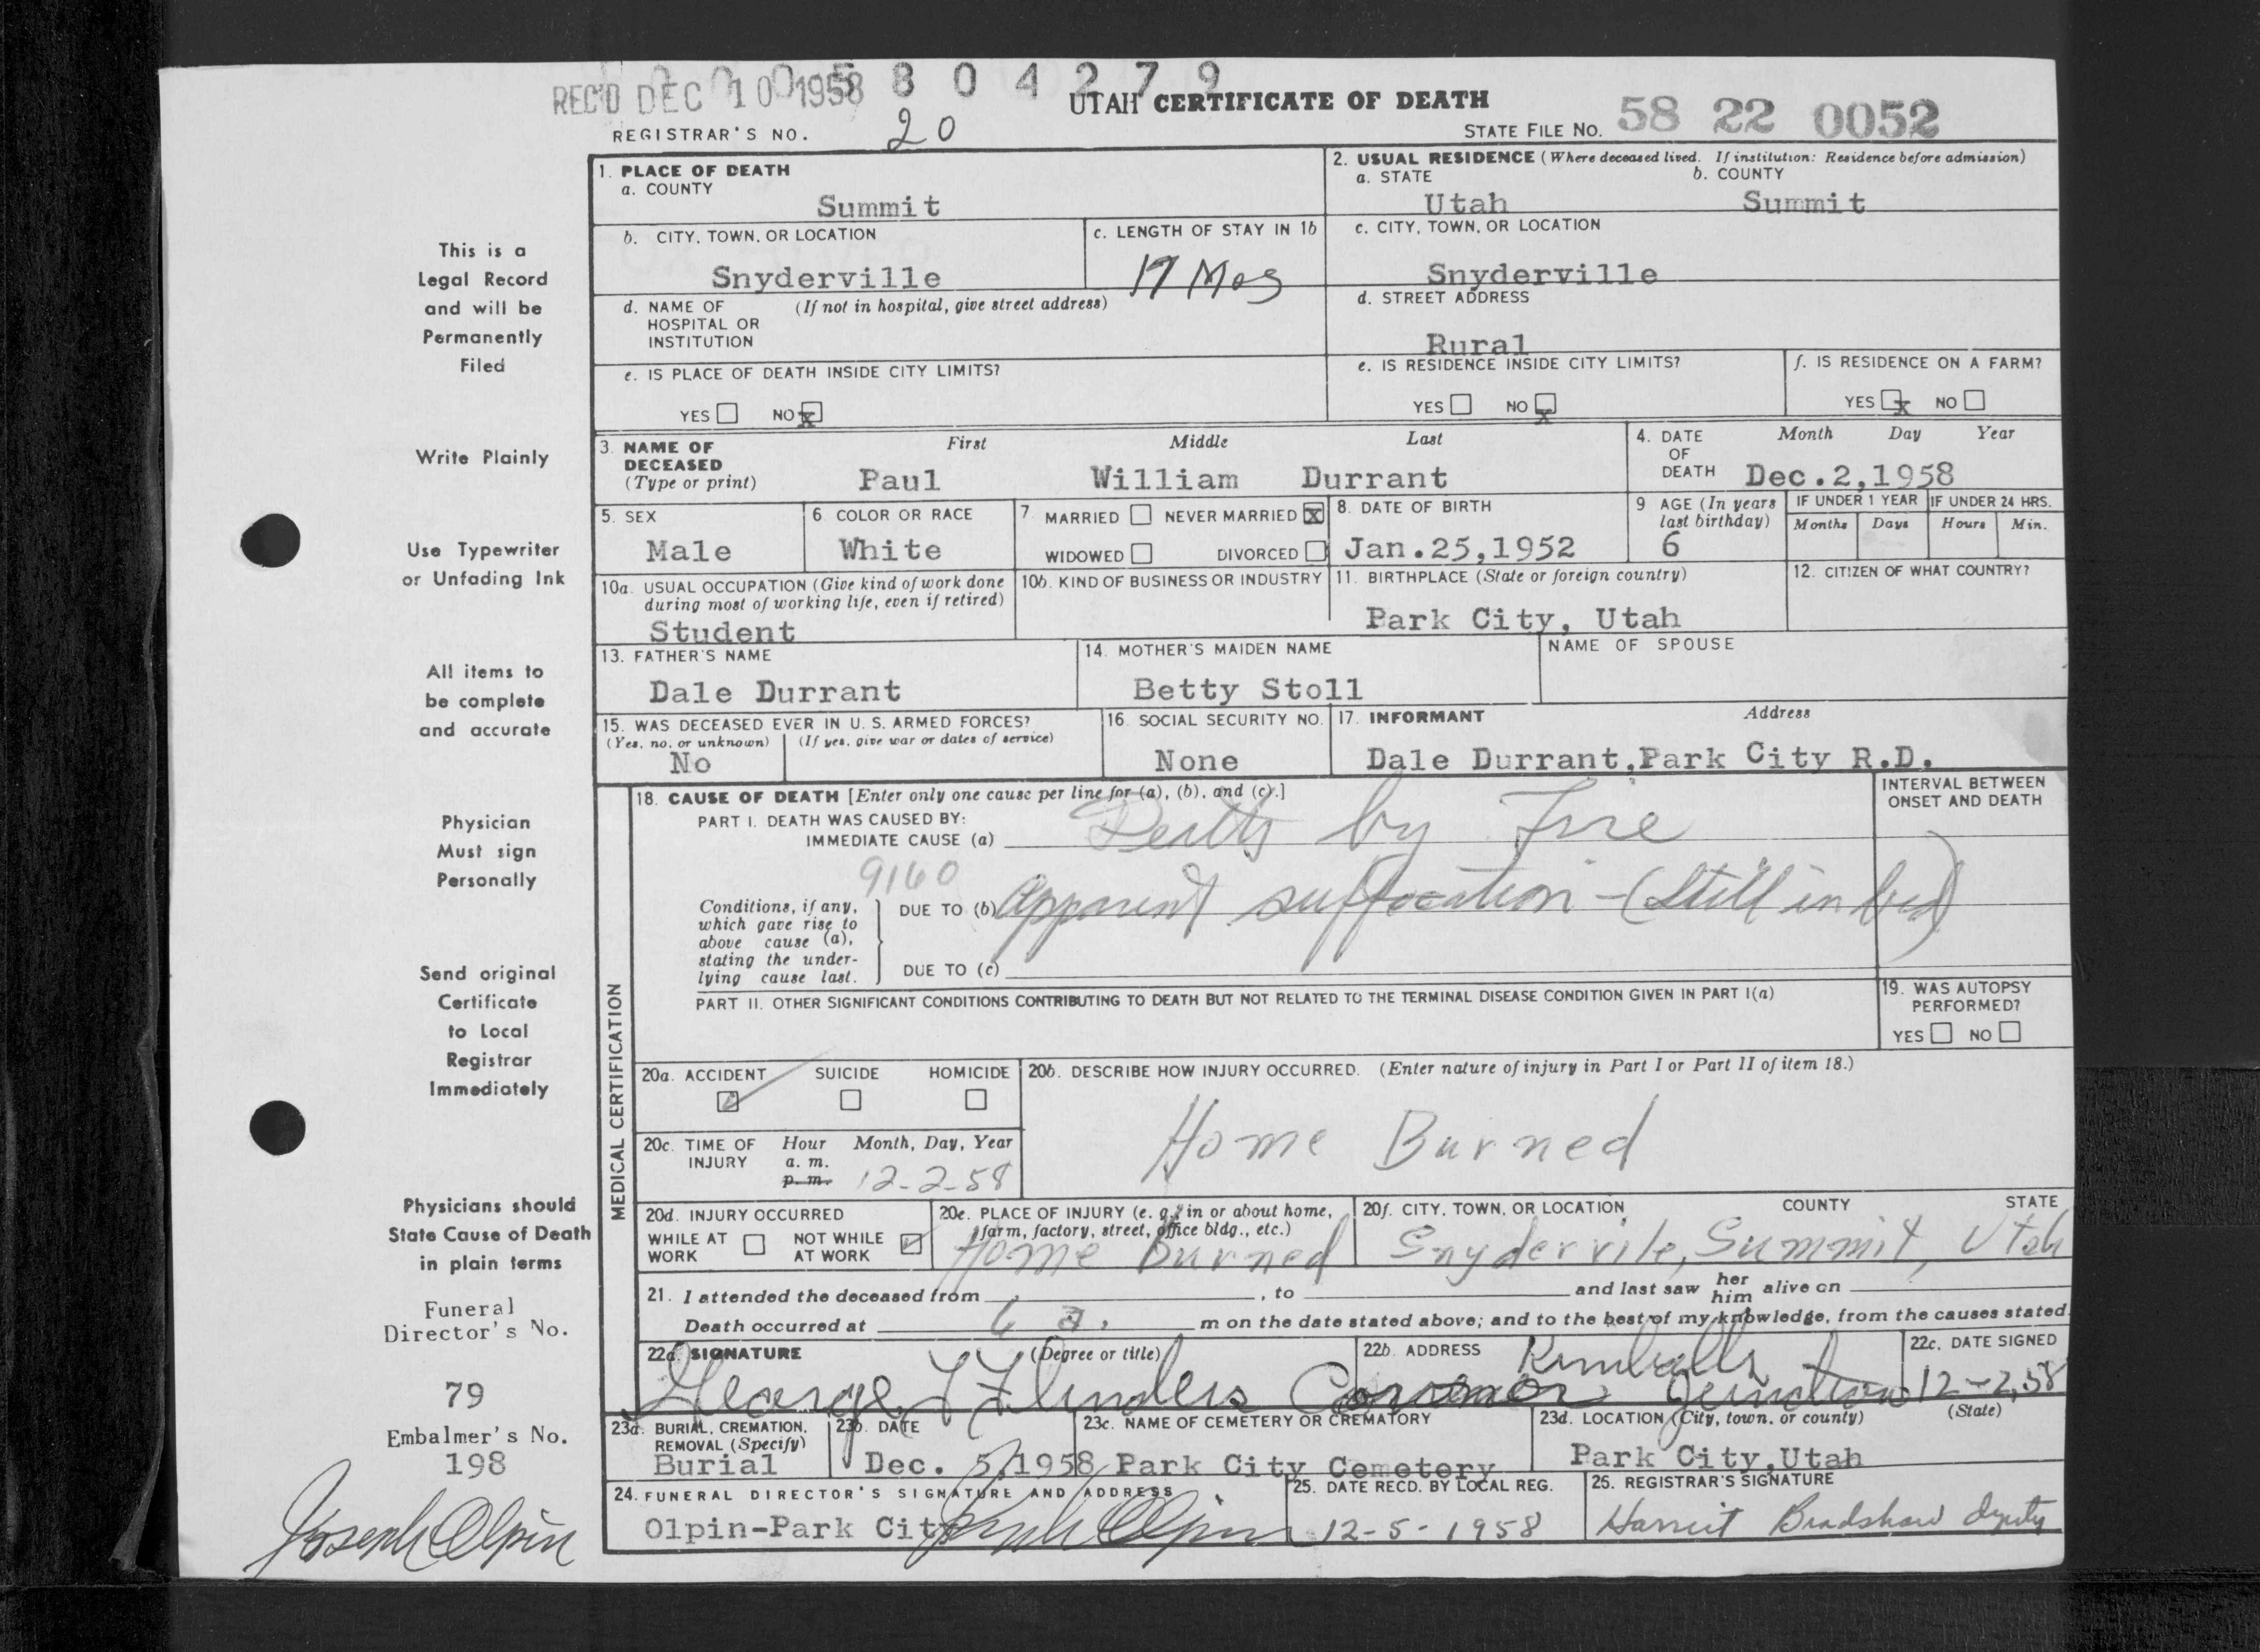 REC'D DEC 10 1958
5804279
UTAH CERTIFICATE OF DEATH
REGISTRAR'S NO. 20
STATE FILE NO. 58 22 0052
This is a
Legal Record
and will be
Permanently
Filed
Write Plainly
Use Typewriter
or Unfading Ink
All items to
be complete
and accurate
Physician
Must sign
Personally
Send original
Certificate
to Local
Registrar
Immediately
Physicians should
State Cause of Death
in plain terms
Funeral
Director's No.
79
Embalmer's No.
198
Joseph Olpin
1. PLACE OF DEATH
a. COUNTY
Summit
2. USUAL RESIDENCE (Where deceased lived. If institution: Residence before admission)
a. STATE b. COUNTY
Utah Summit
b. CITY, TOWN, OR LOCATION
Snyderville
c. LENGTH OF STAY IN 1b
17 Mos
c. CITY, TOWN, OR LOCATION
Snyderville
d. NAME OF (If not in hospital, give street address)
HOSPITAL OR
INSTITUTION
d. STREET ADDRESS
Rural
e. IS PLACE OF DEATH INSIDE CITY LIMITS?
YES NO x
e. IS RESIDENCE INSIDE CITY LIMITS?
YES NO x
f. IS RESIDENCE ON A FARM?
YES x NO
3. NAME OF DECEASED (Type or print)
First Middle Last
Paul William Durrant
4. DATE OF DEATH
Month Day Year
Dec.2,1958
5. SEX
Male
6. COLOR OR RACE
White
7. MARRIED NEVER MARRIED x
WIDOWED DIVORCED
8. DATE OF BIRTH
Jan.25,1952
9 AGE (In years last birthday)
6
IF UNDER 1 YEAR
Months Days
IF UNDER 24 HRS.
Hours Min.
10a. USUAL OCCUPATION (Give kind of work done
during most of working life, even if retired)
Student
10b. KIND OF BUSINESS OR INDUSTRY
11. BIRTHPLACE (State or foreign country)
Park City, Utah
12. CITIZEN OF WHAT COUNTRY?
13. FATHER'S NAME
Dale Durrant
14. MOTHER'S MAIDEN NAME
Betty Stoll
NAME OF SPOUSE
15. WAS DECEASED EVER IN U. S. ARMED FORCES?
(Yes, no, or unknown) (If yes, give war or dates of service)
No
16. SOCIAL SECURITY NO.
None
17. INFORMANT Address
Dale Durrant,Park City R.D.
MEDICAL CERTIFICATION
18. CAUSE OF DEATH [Enter only one cause per line for (a), (b), and (c).]
INTERVAL BETWEEN
ONSET AND DEATH
PART I. DEATH WAS CAUSED BY:
IMMEDIATE CAUSE (a) Death by Fire
9160
Conditions, if any,
which gave rise to
above cause (a),
stating the under-
lying cause last.
DUE TO (b) Apparent suffocation - (Still in bed)
DUE TO (c)
PART II. OTHER SIGNIFICANT CONDITIONS CONTRIBUTING TO DEATH BUT NOT RELATED TO THE TERMINAL DISEASE CONDITION GIVEN IN PART I(a)
19. WAS AUTOPSY
PERFORMED?
YES NO
20a. ACCIDENT SUICIDE HOMICIDE
20b. DESCRIBE HOW INJURY OCCURRED. (Enter nature of injury in Part I or Part II of item 18.)
Home Burned
20c. TIME OF INJURY
Hour Month, Day, Year
a. m.
p. m. 12-2-58
20d. INJURY OCCURRED
WHILE AT WORK NOT WHILE AT WORK
20e. PLACE OF INJURY (e. g., in or about home,
farm, factory, street, office bldg., etc.)
Home Burned
20f. CITY, TOWN, OR LOCATION COUNTY STATE
Snydervile, Summit, Utah
21. I attended the deceased from , to and last saw her him alive on
Death occurred at 6 a. m on the date stated above; and to the best of my knowledge, from the causes stated
22a. SIGNATURE (Degree or title)
George Y Flinders Coroner
22b. ADDRESS
Kimballs Junction
22c. DATE SIGNED
12-2,58
23a. BURIAL, CREMATION,
REMOVAL (Specify)
Burial
23b. DATE
Dec. 5,1958
23c. NAME OF CEMETERY OR CREMATORY
Park City Cemetery
23d. LOCATION (City, town, or county) (State)
Park City,Utah
24. FUNERAL DIRECTOR'S SIGNATURE AND ADDRESS
Olpin-Park City Joseph Olpin
25. DATE RECD. BY LOCAL REG.
12-5-1958
26. REGISTRAR'S SIGNATURE
Harriet Bradshaw deputy